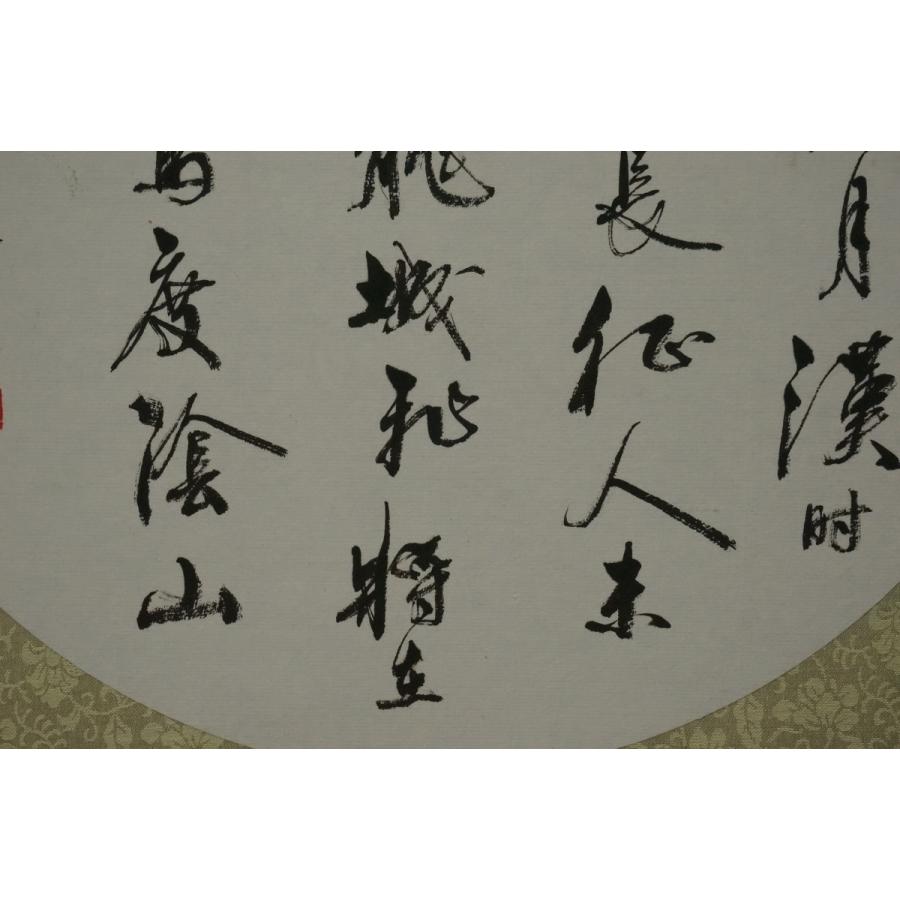 月漢时
長征人未
龍城飛將在
馬度陰山